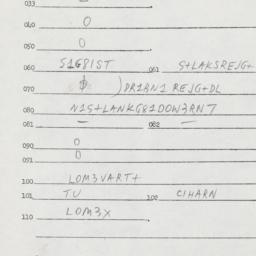 033
040 0
050 0
060 S1G81ST 061 S+LAKSREJG+
070 ) DR1B%1 REJG+DL
080 N1S+LANKG81DOW3RN7
081 — 082 —
090 0
091 0
100 LOM3VART+
101 TU 102 C1HARN
110 LOM3X